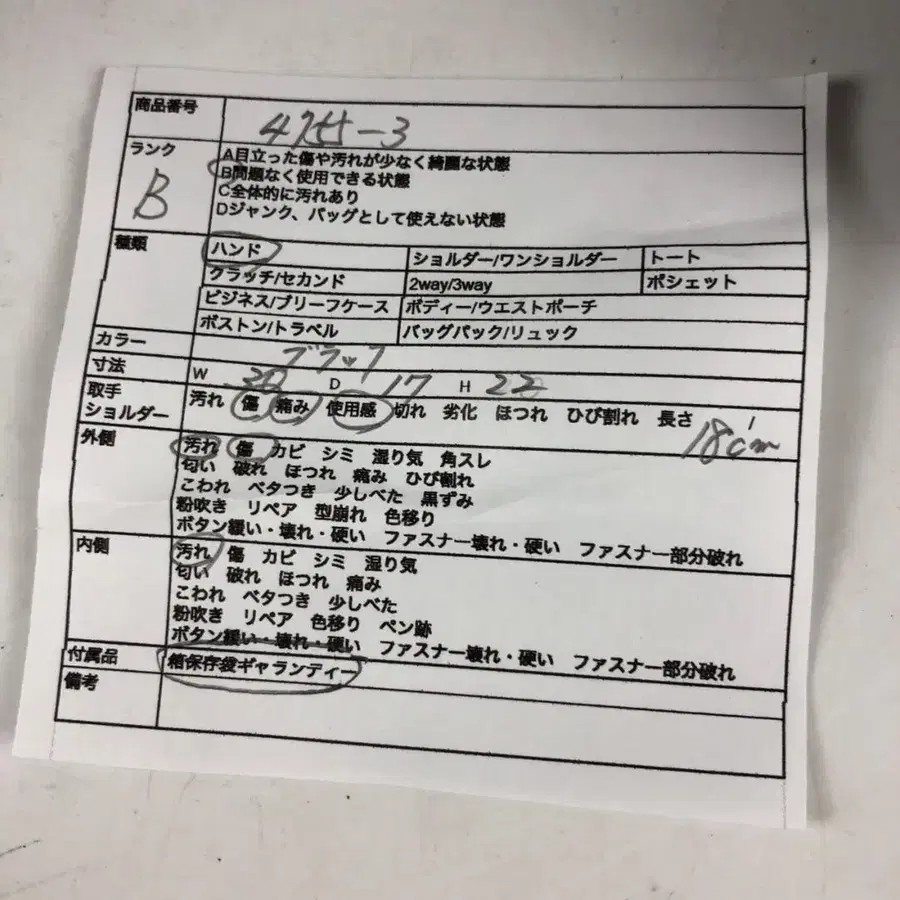 商品番号 4755-3
ランク B
A目立った傷や汚れが少なく綺麗な状態
B問題なく使用できる状態
C全体的に汚れあり
Dジャンク、バッグとして使えない状態
種類 ハンド ショルダー/ワンショルダー トート
クラッチ/セカンド 2way/3way ポシェット
ビジネス/ブリーフケース ボディー/ウエストポーチ
ボストン/トラベル バッグパック/リュック
カラー ブラック
寸法 W D 17 H 22
取手
ショルダー
汚れ 傷 痛み 使用感 切れ 劣化 ほつれ ひび割れ 長さ 18cm
外側 汚れ 傷 カビ シミ 湿り気 角スレ
匂い 破れ ほつれ 痛み ひび割れ
こわれ ベタつき 少しべた 黒ずみ
粉吹き リペア 型崩れ 色移り
ボタン緩い・壊れ・硬い ファスナー壊れ・硬い ファスナー部分破れ
内側 汚れ 傷 カビ シミ 湿り気
匂い 破れ ほつれ 痛み
こわれ ベタつき 少しべた
粉吹き リペア 色移り ペン跡
ボタン緩い・壊れ・硬い ファスナー壊れ・硬い ファスナー部分破れ
付属品 箱保存袋ギャランティー
備考